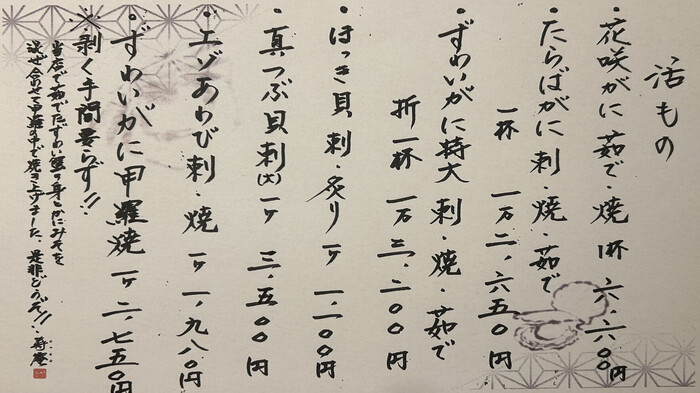 活もの
・花咲がに 茹で・焼 1杯 六、六〇〇円
・たらばがに 刺・焼・茹で
一杯 一万二、六五〇円
・ずわいがに特大 刺・焼・茹で
折一杯 一万三、二〇〇円
・ほっき貝 刺・炙り 一ヶ 一、一〇〇円
・真つぶ貝刺(大) 一ヶ 三、五〇〇円
・エゾあわび刺・焼 一ヶ 一、九八〇円
・ずわいがに甲羅焼 一ヶ 二、七五〇円
※剥く手間要らず!!
当店で茹でたずわい蟹の身とかにみそを
混ぜ合わせて甲羅の中で焼き上げました、是非どうぞ!!